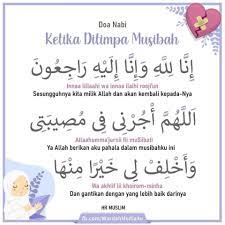 Doa Nabi
Ketika Ditimpa Musibah
إِنَّا لِلَّهِ وَإِنَّا إِلَيْهِ رَاجِعُونَ
Innaa lillaahi wa innaa ilaihi roojiun
Sesungguhnya kita milik Allah dan akan kembali kepada-Nya
اَللَّهُمَّ أْجُرْنِي فِي مُصِيبَتِي
Allaahumma'jurnii fii mushiibatii
Ya Allah berikan aku pahala dalam musibahku ini
وَأَخْلِفْ لِي خَيْرًا مِنْهَا
Wa akhlif lii khoiron-minha
Dan gantikan dengan yang lebih baik darinya
HR MUSLIM